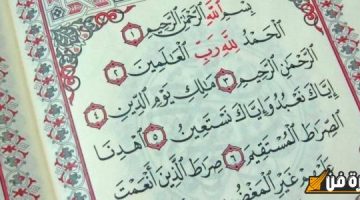 بِسْمِ اللَّهِ الرَّحْمَٰنِ الرَّحِيمِ ١
الْحَمْدُ لِلَّهِ رَبِّ الْعَالَمِينَ ٢
الرَّحْمَٰنِ الرَّحِيمِ ٣ مَالِكِ يَوْمِ الدِّينِ ٤
إِيَّاكَ نَعْبُدُ وَإِيَّاكَ نَسْتَعِينُ ٥ اهْدِنَا
الصِّرَاطَ الْمُسْتَقِيمَ ٦ صِرَاطَ الَّذِينَ أَنْعَمْتَ
عَلَيْهِمْ غَيْرِ الْمَغْضُوبِ
ة فن